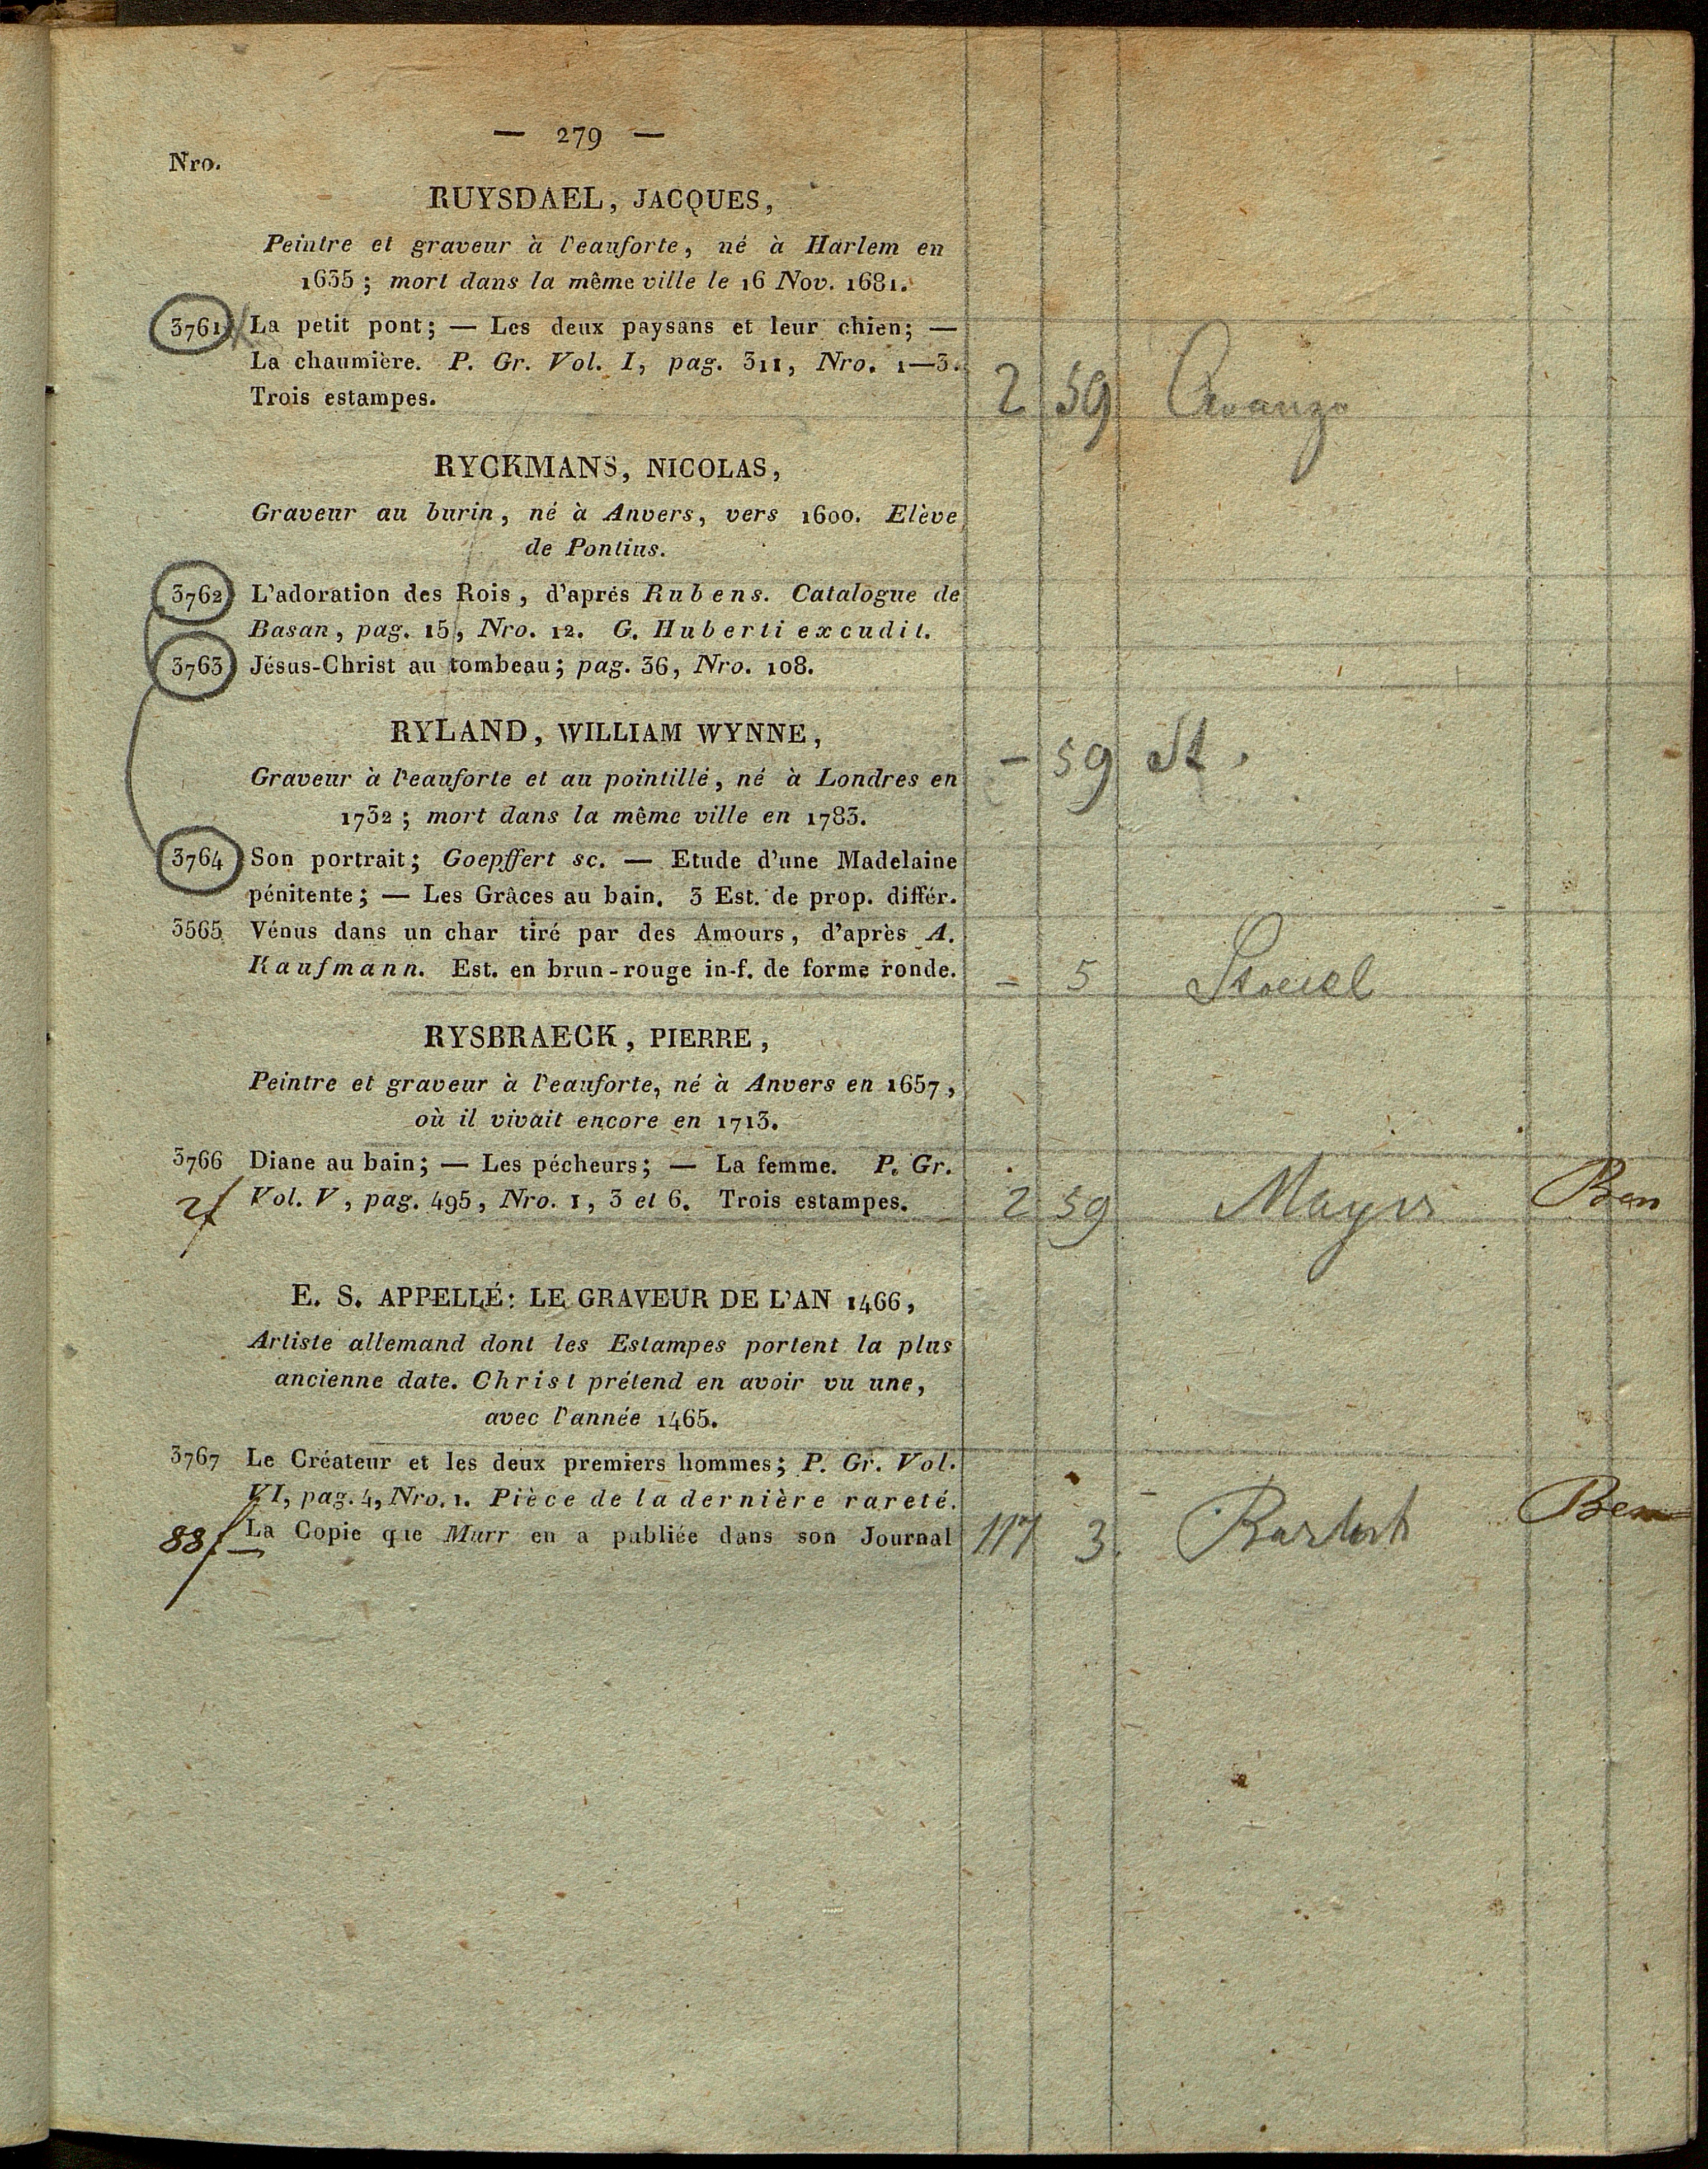 — 279 —
Nro.
RUYSDAEL, JACQUES,
Peintre et graveur à l'eauforte, né à Harlem en
1635; mort dans la même ville le 16 Nov. 1681.
3761 La petit pont; — Les deux paysans et leur chien; —
La chaumière. P. Gr. Vol. I, pag. 311, Nro. 1—3.
Trois estampes. 2 59
RYCKMANS, NICOLAS,
Graveur au burin, né à Anvers, vers 1600. Elève
de Pontius.
3762 L'adoration des Rois, d'aprés Rubens. Catalogue de
Basan, pag. 15, Nro. 12. G. Huberti excudit.
3763 Jésus-Christ au tombeau; pag. 36, Nro. 108.
RYLAND, WILLIAM WYNNE,
— 59 St.
Graveur à l'eauforte et au pointillé, né à Londres en
1732; mort dans la même ville en 1783.
3764 Son portrait; Goepffert sc. — Etude d'une Madelaine
pénitente; — Les Grâces au bain. 3 Est. de prop. différ.
3565 Vénus dans un char tiré par des Amours, d'après A.
Kaufmann. Est. en brun-rouge in-f. de forme ronde. — 5
RYSBRAECK, PIERRE,
Peintre et graveur à l'eauforte, né à Anvers en 1657,
où il vivait encore en 1713.
3766 Diane au bain; — Les pécheurs; — La femme. P. Gr.
2f Vol. V, pag. 495, Nro. 1, 3 et 6. Trois estampes. 2 59 Ben
E. S. APPELLÉ: LE GRAVEUR DE L'AN 1466,
Artiste allemand dont les Estampes portent la plus
ancienne date. Christ prétend en avoir vu une,
avec l'année 1465.
3767 Le Créateur et les deux premiers hommes; P. Gr. Vol.
VI, pag. 4, Nro. 1. Pièce de la dernière rareté.
88f — La Copie que Murr en a publiée dans son Journal 117 3. Bartsch Ben